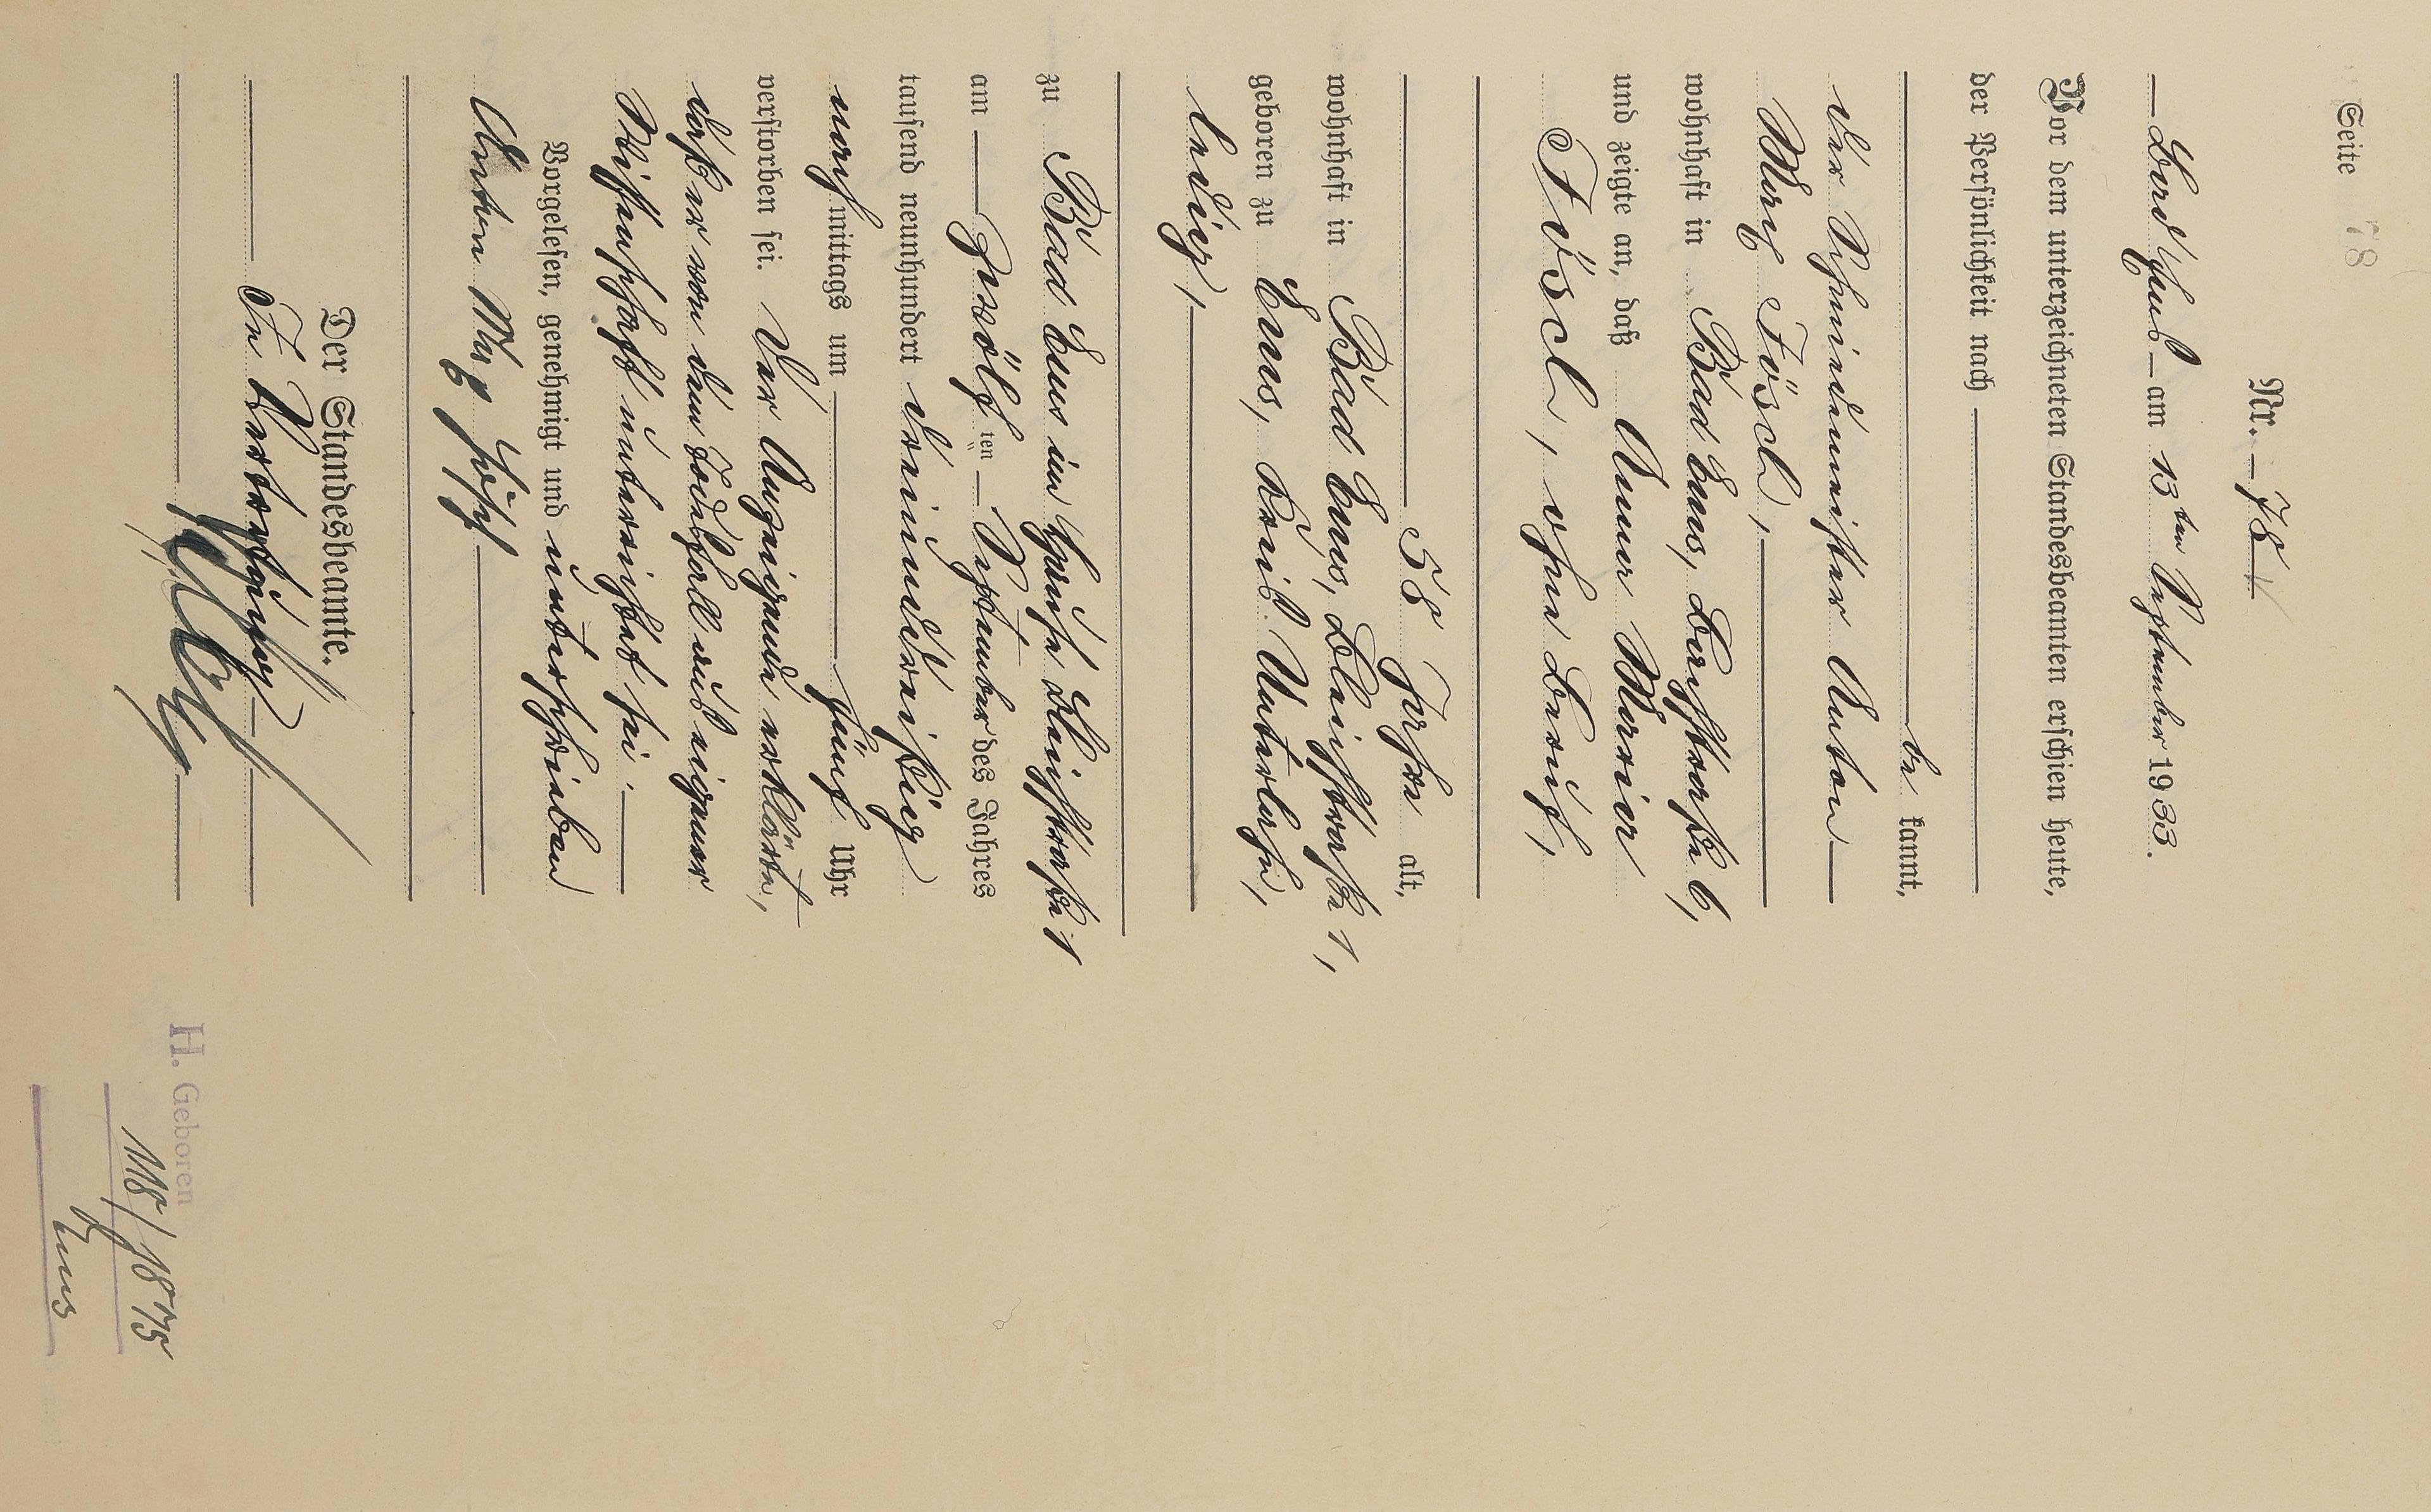 Seite 78
Nr. 78
Bad Ems am 13ten September 1933.
Vor dem unterzeichneten Standesbeamten erschien heute,
der Persönlichkeit nach
be kannt,
der Schneidermeister Anton
wohnhaft in Bad Ems, Bachstraße 6,
und zeigte an, daß Anna Maria
ohne Beruf,
58 Jahre alt,
wohnhaft in Bad Ems, Bleichstraße 1,
geboren zu Ems, Kreis Unterlahn,
ledig,
zu Bad Ems im Hause Bleichstraße 1
am Zwölf ten September des Jahres
tausend neunhundert dreiunddreißig
nach mittags um fünf Uhr
verstorben sei. Der Anzeigende erklärte,
daß er von dem Todesfall aus eigener
Wissenschaft unterrichtet sei.
Vorgelesen, genehmigt und unterschrieben
Anton
Der Standesbeamte.
In Vertretung
H. Geboren
118/1875
Ems